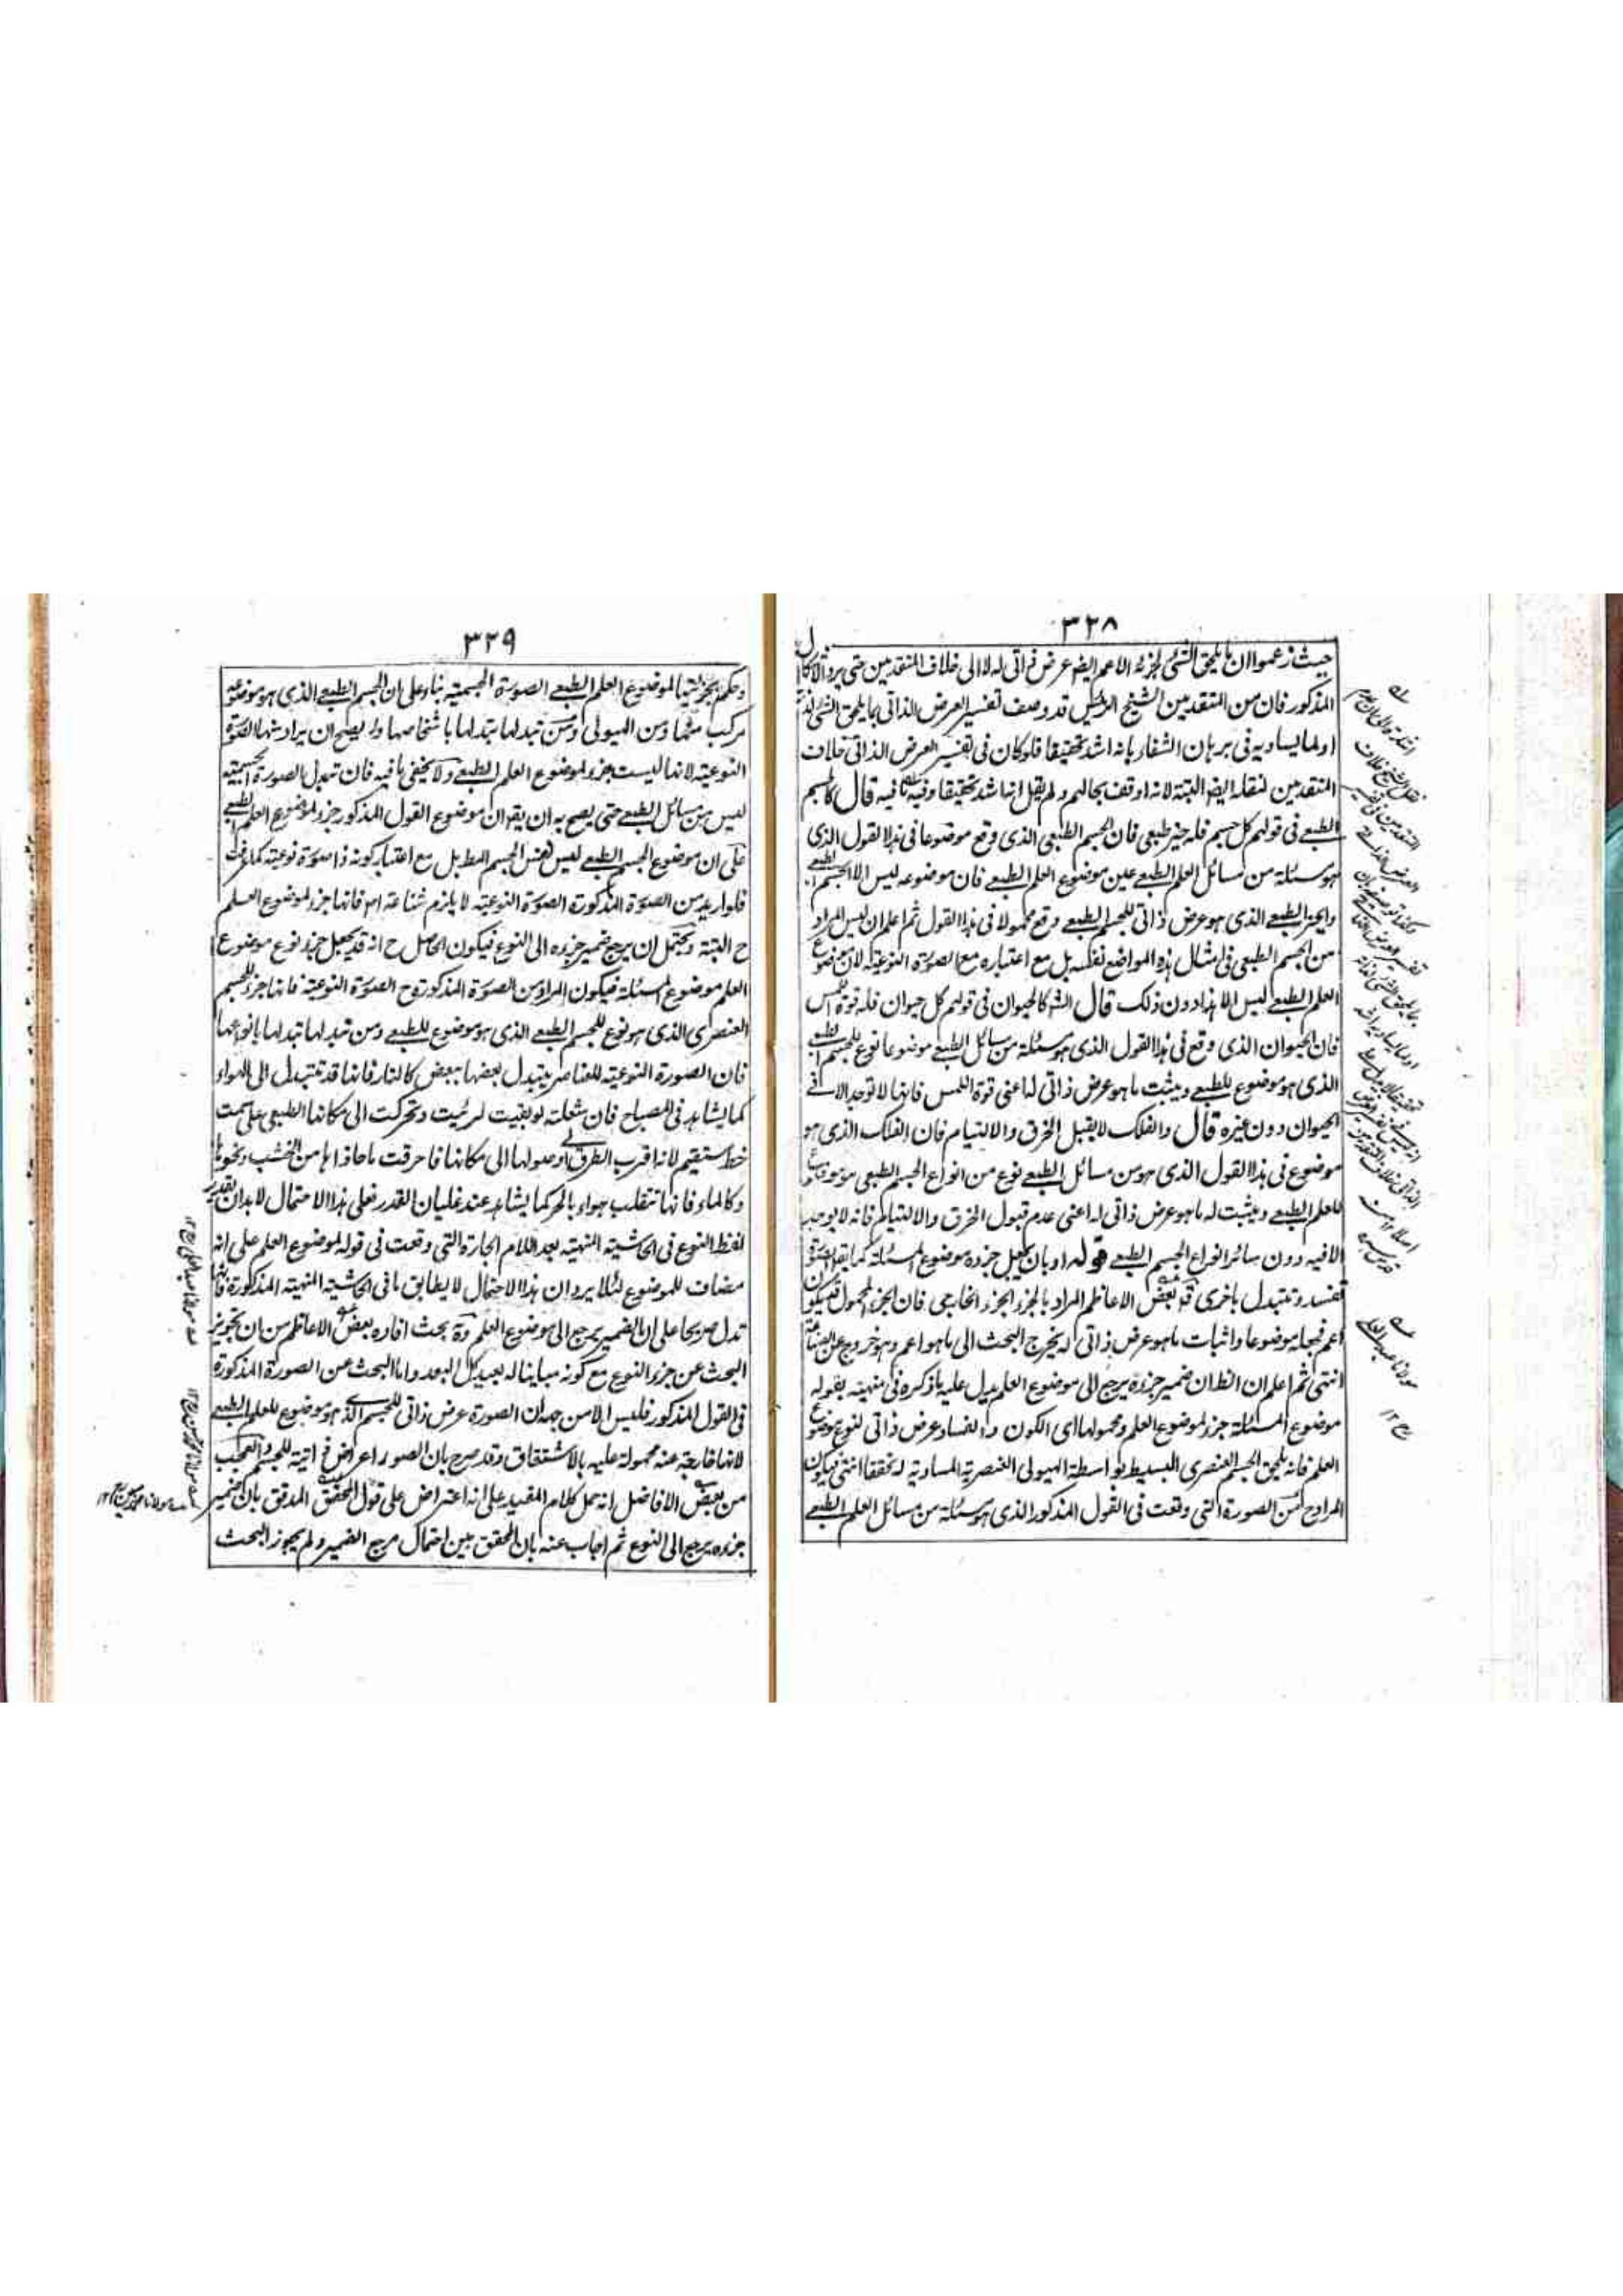 ٣٢٨
حيث زعموا ان ما يلحق الشئ لجزئه الاعم ايضا عرض ذاتى له لا الى خلاف المتقدمين حتى يرد الاشكال
المذكور فان من المتقدمين الشيخ الرئيس قد وصف تفسير العرض الذاتى بما يلحق الشئ لذاته
او لما يساويه فى برهان الشفاء بانه اشد تحقيقا فلو كان فى تفسير العرض الذاتى خلاف
المتقدمين لنقله ايضا البتة لانه اوقف بحالهم ولم يقل انه اشد تحقيقا وفيه ما فيه قال كالجسم
الطبعے فى قولهم كل جسم فله حيز طبعى فان الجسم الطبعى الذى وقع موضوعا فى هذا القول الذى
هو مسئلة من مسائل العلم الطبعے عين موضوع العلم الطبعے فان موضوعه ليس الا الجسم الطبعے
والحيز الطبعے الذى هو عرض ذاتى للجسم الطبعے وقع محمولا فى هذا القول ثم اعلم ان ليس المراد
من الجسم الطبعى فى امثال هذه المواضع نفسه بل مع اعتباره مع الصورة النوعية لان موضوع
العلم الطبعے ليس الا هذا دون ذلك قال الشه كالحيوان فى قولهم كل حيوان فله قوة اللمس
فان الحيوان الذى وقع فى هذا القول الذى هو مسئلة من مسائل الطبعے موضوعا نوع للجسم الطبعے
الذى هو موضوع للطبعے ويثبت ما هو عرض ذاتى له اعنى قوة اللمس فانها لا توجد الا فى
الحيوان دون غيره قال والفلك لا يقبل الخرق والالتيام فان الفلك الذى هو
موضوع فى هذا القول الذى هو من مسائل الطبعے نوع من انواع الجسم الطبعى موضوعا
للعلم الطبعے ويثبت له ما هو عرض ذاتى له اعنى عدم قبول الخرق والالتيام فانه لا يوجد
الا فيه دون سائر انواع الجسم الطبعے قوله او بان يجعل جزءه موضوع المسئلة كما يقال الصورة
تفسد وتتبدل باخرى قه بعض الاعاظم المراد بالجزء الجزء الخارجى فان الجزء المحمول قد يكون
اعم فجعله موضوعا واثبات ما هو عرض ذاتى له يخرج البحث الى ما هو اعم وهو خروج عن الصناعة
انتهى ثم اعلم ان الظ ان ضمير جزءه يرجع الى موضوع العلم يدل عليه ما ذكره فى منهيته بقوله
موضوع المسئلة جزء لموضوع العلم ومحمولها اى الكون والفساد عرض ذاتى لنوع موضوع
العلم فانه يلحق الجسم العنصرى البسيط بواسطة الهيولى العنصرية المساوية له تحققا انتهى فيكون
المراد ح من الصورة التى وقعت فى القول المذكور الذى هو مسئلة من مسائل العلم الطبعے
مولانا عبد العلى
رح ١٢
٣٢٩
وحكم بجزئيتها لموضوع العلم الطبعے الصورة الجسمية بناء على ان الجسم الطبعے الذى هو موضوعه
مركب منها ومن الهيولى ومن تبدلها تبدلها باشخاصها ولا يصح ان يراد منها الصورة
النوعية لانها ليست جزء لموضوع العلم الطبعے ولا يخفى ما فيه فان تبدل الصورة الجسمية
ليس من مسائل الطبعے حتى يصح به ان يقال ان موضوع القول المذكور جزء لموضوع العلم الطبعے
على ان موضوع الجسم الطبعے ليس نفس الجسم المط بل مع اعتبار كونه ذا صورة نوعية كما عرفت
فلو اريد من الصورة المذكورة الصورة النوعية لا يلزم شناعة اصلا فانها جزء لموضوع العلم
ح البتة ويحتمل ان يرجع ضمير جزءه الى النوع فيكون الحاصل ح انه قد يجعل جزء نوع موضوع
العلم موضوع المسئلة فيكون المراد من الصورة المذكورة ح الصورة النوعية فانها جزء للجسم
العنصرى الذى هو نوع للجسم الطبعے الذى هو موضوع للطبعے ومن تبدلها تبدلها بانواعها
فان الصورة النوعية للعناصر يتبدل بعضها ببعض كالنار فانها قد تتبدل الى الهواء
كما يشاهد فى المصباح فان شعلته لو بقيت لرئيت وتحركت الى مكانها الطبعى على سمت
خط مستقيم لانه اقرب الطرق لوصولها الى مكانها فاحرقت ما حاذاها من الخشب ونحوها
وكالماء فانها تنقلب هواء بالحر كما يشاهد عند غليان القدر فعلى هذا الاحتمال لا بد ان يقدر
لفظ النوع فى الحاشية المنهية بعد اللام الجارة التى وقعت فى قوله لموضوع العلم على انه
مضاف للموضوع لئلا يرد ان هذا الاحتمال لا يطابق ما فى الحاشية المنهية المذكورة فانها
تدل صريحا على ان الضمير يرجع الى موضوع العلم وة بحث افاده بعض الاعاظم من ان تجويز
البحث عن جزء النوع مع كونه مباينا له بعيد كل البعد واما البحث عن الصورة المذكورة
فى القول المذكور فليس الا من جهة ان الصورة عرض ذاتى للجسم الذى هو موضوع للعلم الطبعے
لانها خارجة عنه محمولة عليه بالاشتقاق وقد صرح بان الصور اعراض ذاتية للجسم والعجب
من بعض الافاضل انه حمل كلام المفيد على انه اعتراض على قول المحقق المدقق بان ضمير
جزءه يرجع الى النوع ثم اجاب عنه بان المحقق بين احتمال مرجع الضمير ولم يجوز البحث